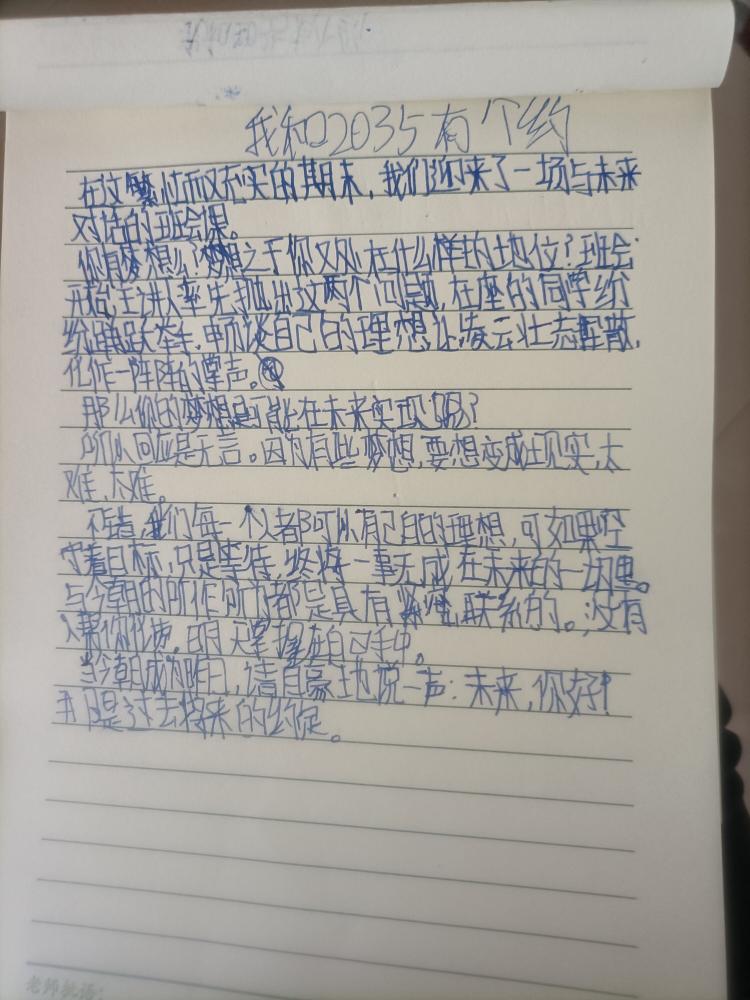 我和2035有个约
在这繁忙而又充实的期末，我们迎来了一场与未来
对话的班会课。
你有梦想么？梦想之于你又处在什么样的地位？班会
开始，主讲人率先抛出这两个问题，在座的同学纷
纷踊跃举手，畅谈自己的理想，让凌云壮志挥散，
化作一阵阵的掌声。
那么你的梦想是可能在未来实现呢？
所以回应是无言。因为有些梦想，要想变成现实，太
难，太难。
我们每一个人都可以有己自的理想，可如果空
守着目标，只是等待，终将一事无成，在未来的一切里。
与今朝的所作所为都是具有紧密联系的。没有
人帮你化妆，明天掌握在自己手中。
当今朝成为昨日，请自豪地说一声：未来，你好！
我是过去将来的约定。
老师批语：